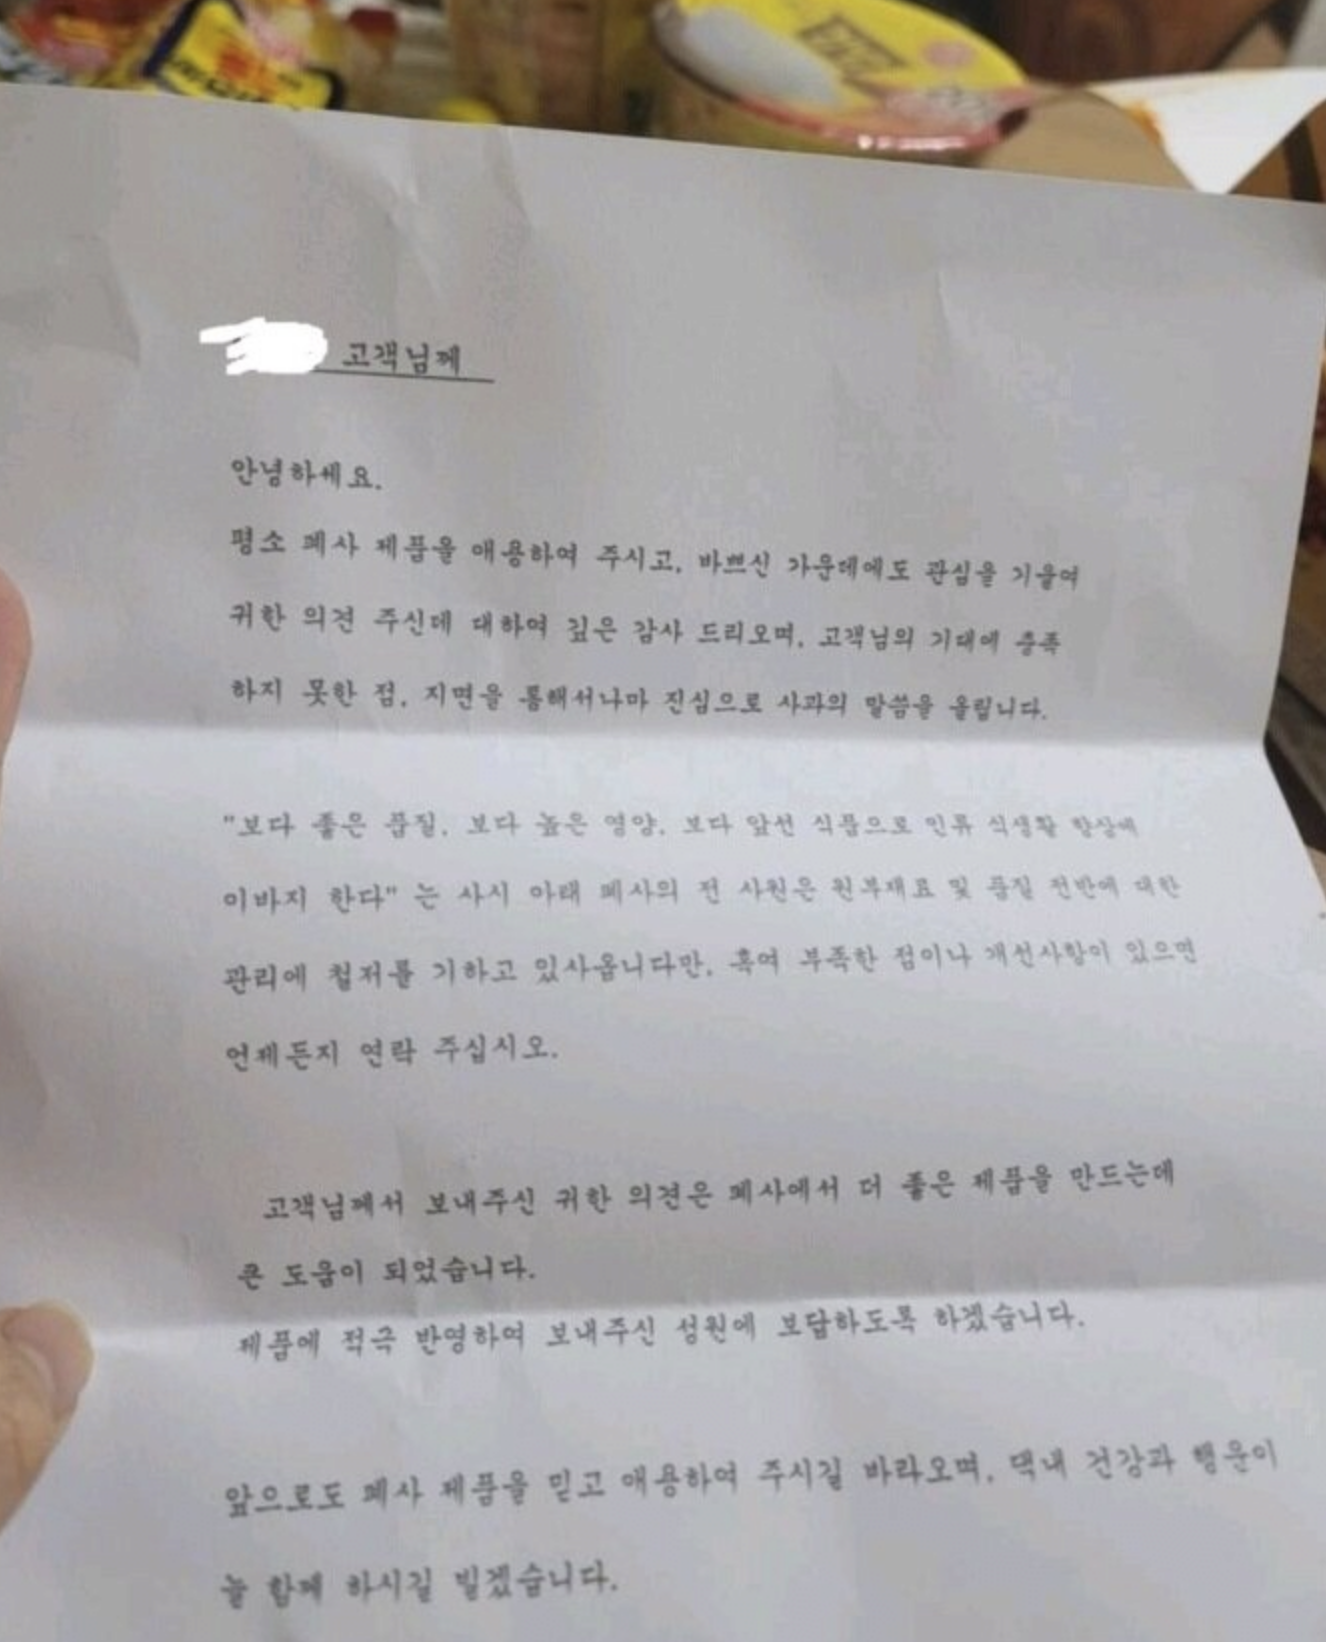 고객님께
안녕하세요.
평소 폐사 제품을 애용하여 주시고, 바쁘신 가운데에도 관심을 기울여
귀한 의견 주신데 대하여 깊은 감사 드리오며, 고객님의 기대에 충족
하지 못한 점, 지면을 통해서나마 진심으로 사과의 말씀을 올립니다.
"보다 좋은 품질, 보다 높은 영양, 보다 앞선 식품으로 인류 식생활 향상에
이바지 한다" 는 사시 아래 폐사의 전 사원은 원부재료 및 품질 전반에 대한
관리에 철저를 기하고 있사옵니다만, 혹여 부족한 점이나 개선사항이 있으면
언제든지 연락 주십시오.
고객님께서 보내주신 귀한 의견은 폐사에서 더 좋은 제품을 만드는데
큰 도움이 되었습니다.
제품에 적극 반영하여 보내주신 성원에 보답하도록 하겠습니다.
앞으로도 폐사 제품을 믿고 애용하여 주시길 바라오며, 댁내 건강과 행운이
늘 함께 하시길 빌겠습니다.